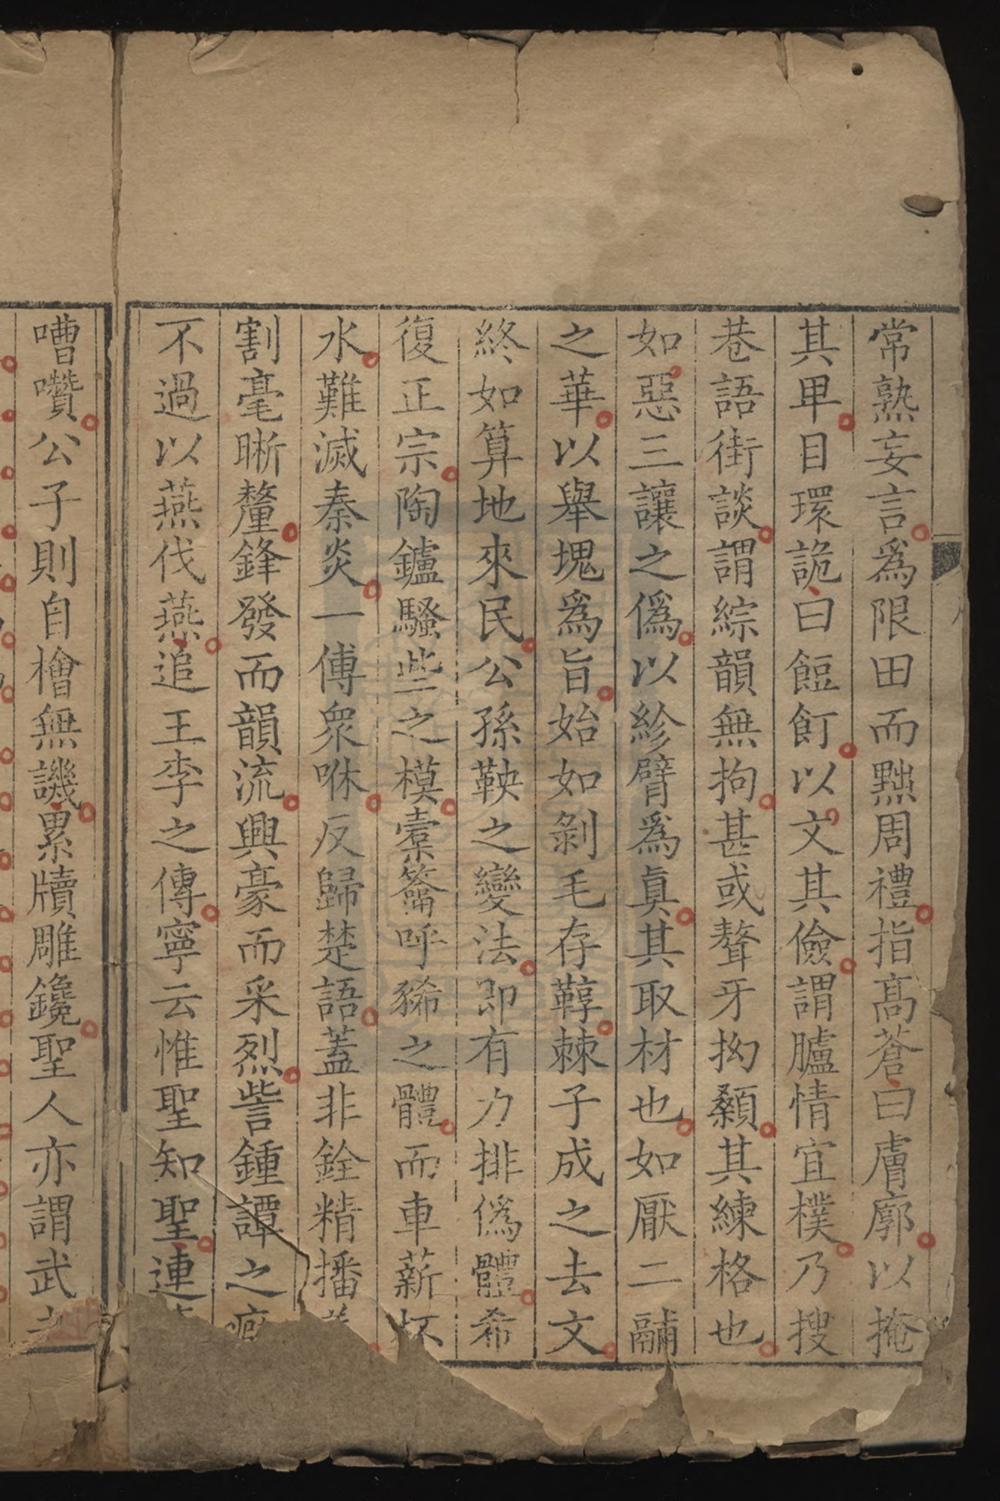 常熟妄言爲限田而黜周禮指高蒼曰膚廓以掩
其卑目環詭曰餖飣以文其儉謂臚情宜樸乃搜
巷語街談謂綜韻無拘甚或聱牙拗顙其練格也
如惡三讓之僞以紾臂爲眞其取材也如厭二酺
之華以舉塊爲旨始如剝毛存鞟棘子成之去文
終如算地來民公孫鞅之變法即有力排僞體希
復正宗陶鑪騷些之模橐籥呼豨之體而車薪杯
水難滅秦炎一傅衆咻反歸楚語蓋非銓精播
割毫晰釐鋒發而韻流興豪而采烈訾鍾譚之
不過以燕伐燕追王李之傳寧云惟聖知聖連
嘈囋公子則自檜無譏累牘雕鑱聖人亦謂武